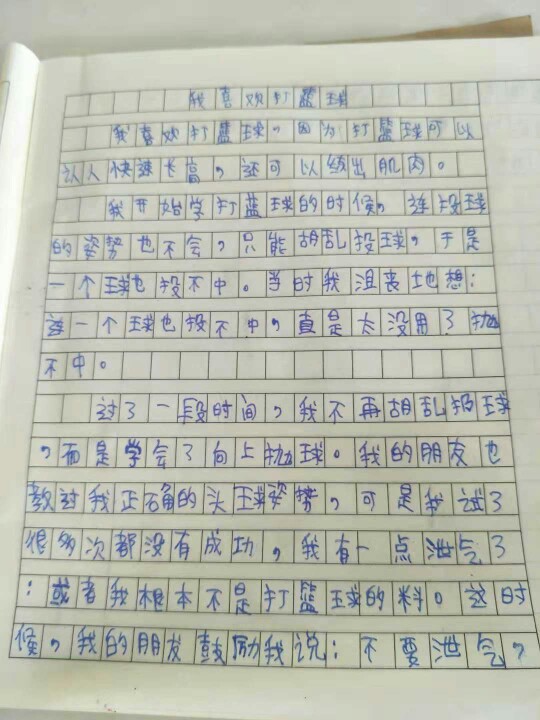 我喜欢打蓝球
我喜欢打蓝球，因为打篮球可以
认人快速长高，还可以练出肌肉。
我开始学打蓝球的时候，连投球
的姿势也不会，只能胡乱投球，于是
一个球也投不中。当时我沮丧地想：
连一个球也投不中，真是太没用了抛
不中。
过了一段时间，我不再胡乱投球
，而是学会了向上抛球。我的朋友也
教过我正确的头球姿势，可是我试了
很多次都没有成功，我有一点泄气了
：或者我根本不是打篮球的料。这时
候，我的朋友鼓励我说：不要泄气，